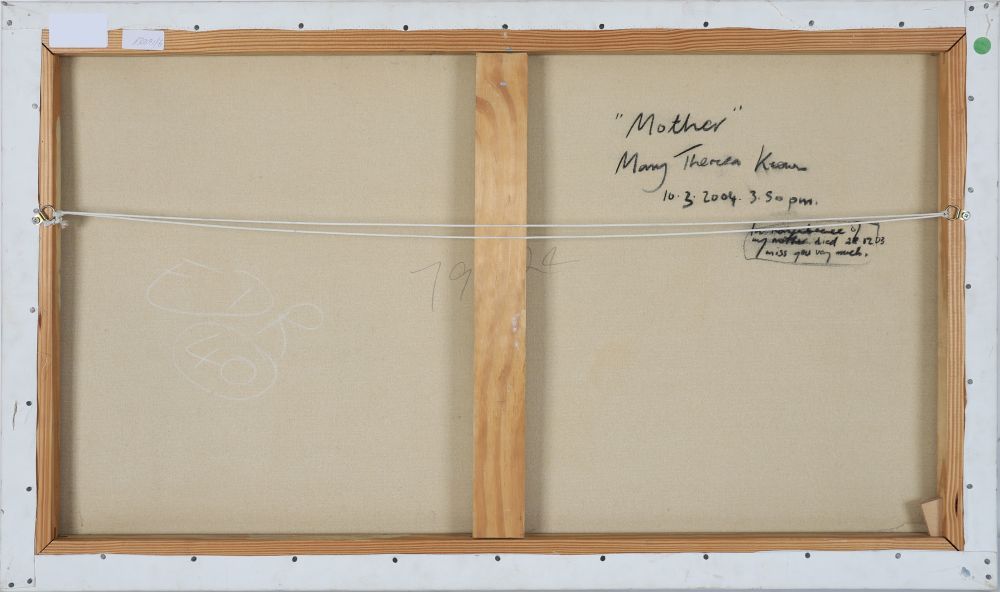 "Mother"
Mary Theresa Keown
10.3.2004. 3.50pm.
In remembrance of
my mother died 28.12.03
miss you very much.
79 24
40